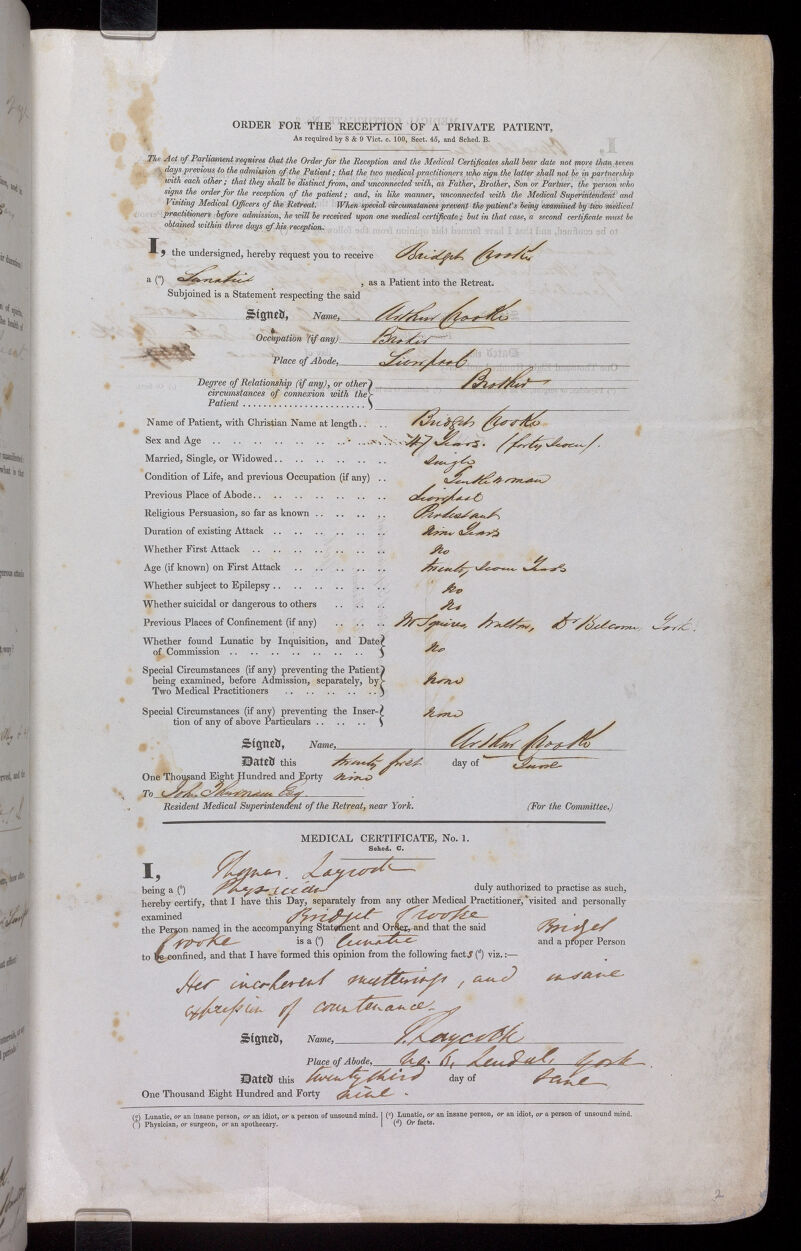 ORDER FOR THE RECEPTION OF A PRIVATE PATIENT,
As required by 8 & 9 Vict. c. 100, Sect. 45, and Sched. B.
The Act of Parliament requires that the Order for the Reception and the Medical Certificates shall bear date not more than seven
days previous to the admission of the Patient; that the two medical practitioners who sign the latter shall not be in partnership
with each other; that they shall be distinct from, and unconnected with, as Father, Brother, Son or Partner, the person who
signs the order for the reception of the patient; and, in like manner, unconnected with the Medical Superintendent and
Visiting Medical Officers of the Retreat. When special circumstances prevent the patient's being examined by two medical
practitioners before admission, he will be received upon one medical certificate; but in that case, a second certificate must be
obtained within three days of his reception.
I, the undersigned, hereby request you to receive Bridget Crooke
a (a) Lunatic, as a Patient into the Retreat.
Subjoined is a Statement respecting the said
Signed, Name, Arthur Crooke
Occupation (if any) Broker
Place of Abode, Liverpool
Degree of Relationship (if any), or other
circumstances of connexion with the
Patient Brother
Name of Patient, with Christian Name at length Bridget Crooke
Sex and Age 47 Years. (forty seven).
Married, Single, or Widowed Single
Condition of Life, and previous Occupation (if any) Gentlewoman
Previous Place of Abode Liverpool
Religious Persuasion, so far as known Protestant
Duration of existing Attack Nine Years
Whether First Attack No
Age (if known) on First Attack twenty seven Years
Whether subject to Epilepsy No
Whether suicidal or dangerous to others No
Previous Places of Confinement (if any) Mr Squires, Walton, Dr Belcome York.
Whether found Lunatic by Inquisition, and Date
of Commission No
Special Circumstances (if any) preventing the Patient
being examined, before Admission, separately, by
Two Medical Practitioners None
Special Circumstances (if any) preventing the Inser-
tion of any of above Particulars None
Signed, Name, Arthur Crooke
Dated this twenty first day of June
One Thousand Eight Hundred and Forty nine
To John Thurnam Esq
Resident Medical Superintendent of the Retreat, near York. (For the Committee.)
MEDICAL CERTIFICATE, No. 1.
Sched. C.
I, Thomas Laycock
being a (b) Physician duly authorized to practise as such,
hereby certify, that I have this Day, separately from any other Medical Practitioner, visited and personally
examined Bridget Crooke
the Person named in the accompanying Statement and Order, and that the said Bridget
Crooke is a (c) lunatic and a proper Person
to be confined, and that I have formed this opinion from the following facts (d) viz.:—
Her incoherent mutterings, and insane
expression of countenance.
Signed, Name, T. Laycock
Place of Abode, Lendal, York.
Dated this twenty third day of June
One Thousand Eight Hundred and Forty nine.
(a) Lunatic, or an insane person, or an idiot, or a person of unsound mind.
(b) Physician, or surgeon, or an apothecary.
(c) Lunatic, or an insane person, or an idiot, or a person of unsound mind.
(d) Or facts.
2